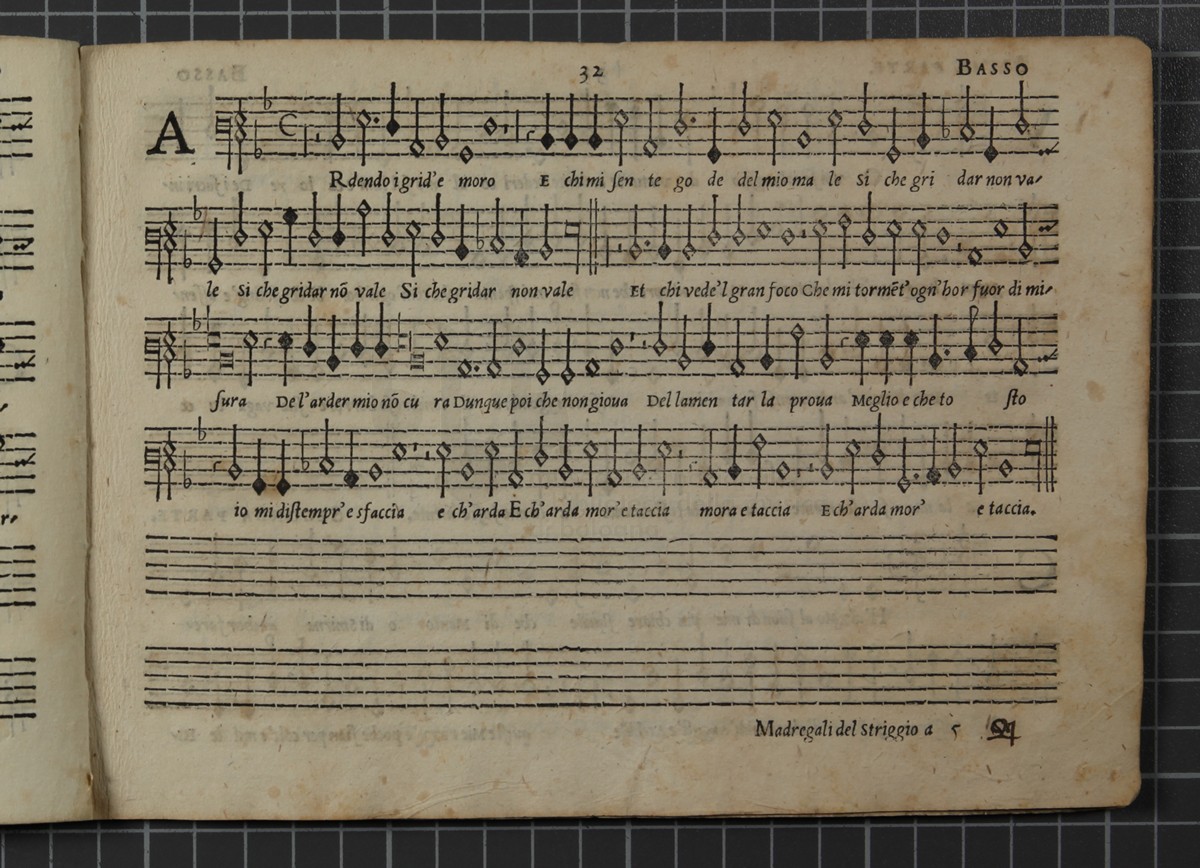 32 BASSO
ARdendo i grid'e moro E chi mi ſen te go de del mio ma le Si che gri dar non va-
le Si che gridar nō vale Si che gridar non vale Et chi vede'l gran foco Che mi tormēt'ogn'hor fuor di mi-
ſura De l'arder mio nō cu ra Dunque poi che non gioua Del lamen tar la proua Meglio e che to ſto
io mi diſtempr'e sfaccia e ch'arda E ch'arda mor'e taccia mora e taccia E ch'arda mor' e taccia.
Madregali del Striggio a 5